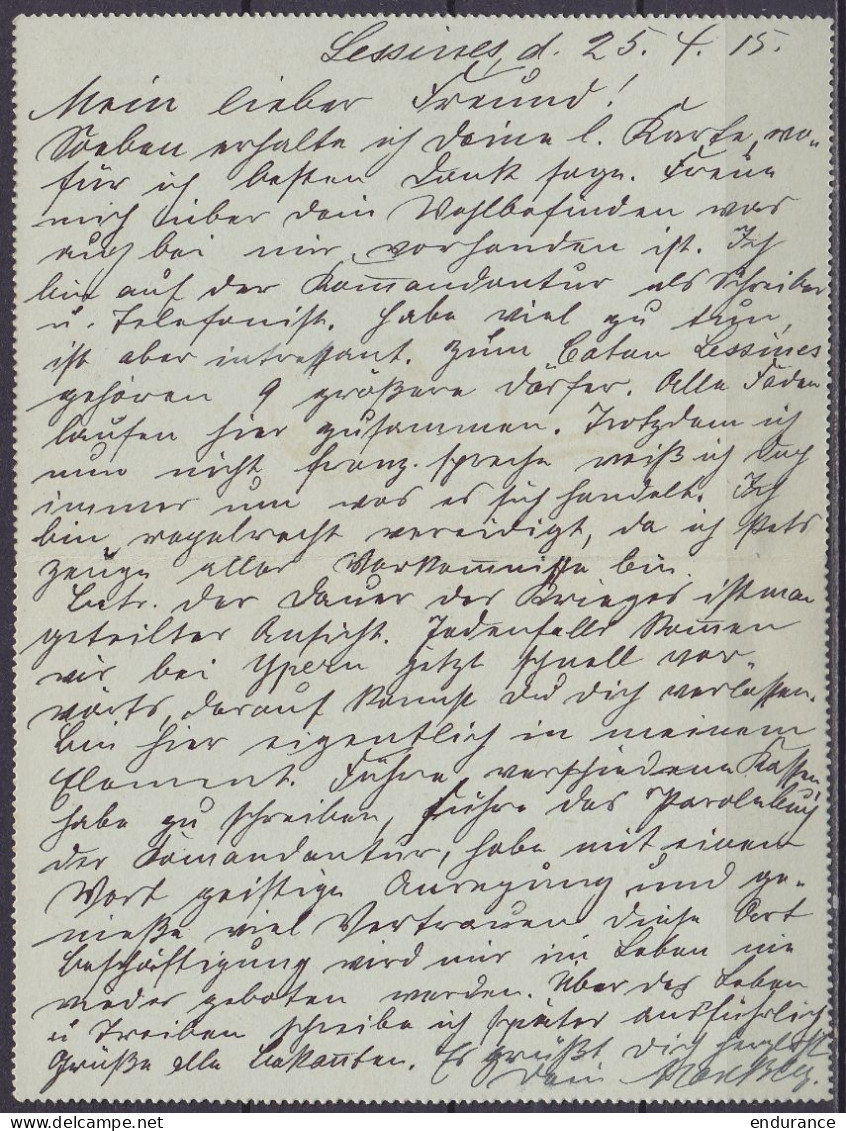 Lessines, d. 25. 4. 15.
Mein lieber Freund!
Soeben erhalte ich Deine l. Karte, wo-
für ich besten Dank sage. Freue
mich über dein Wohlbefinden was
auch bei mir vorhanden ist. Ich
bin auf der Komandantur als Schreiber
u. Telefonist. Habe viel zu tun,
ist aber intressant. Zum Canton Lessines
gehören 9 größere Dörfer. Alle Fäden
laufen hier zusammen. Trotzdem ich
nun nicht franz. spreche weiß ich doch
immer um was es sich handelt. Ich
bin regelrecht vereidigt, da ich stets
Zeuge aller Vorkomnisse bin.
Betr. der Dauer des Krieges ist man
geteilter Ansicht. Jedenfalls kommen
wir bei Ypern jetzt schnell vor-
wärts, darauf kannst Du dich verlassen.
Bin hier eigentlich in meinem
Element. Führe verschiedene Kassen
habe zu schreiben, führe das Parolebuch
der Komandantur, habe mit einem
Wort geistige Anregung und ge-
nieße viel Vertrauen diese Art
Beschäftigung wird mir im Leben nie
wieder geboten werden. Über das Leben
u Treiben schreibe ich später ausführlich
Grüße alle Bekannten. Es grüßt Dich herzlichst
Dein
endurance